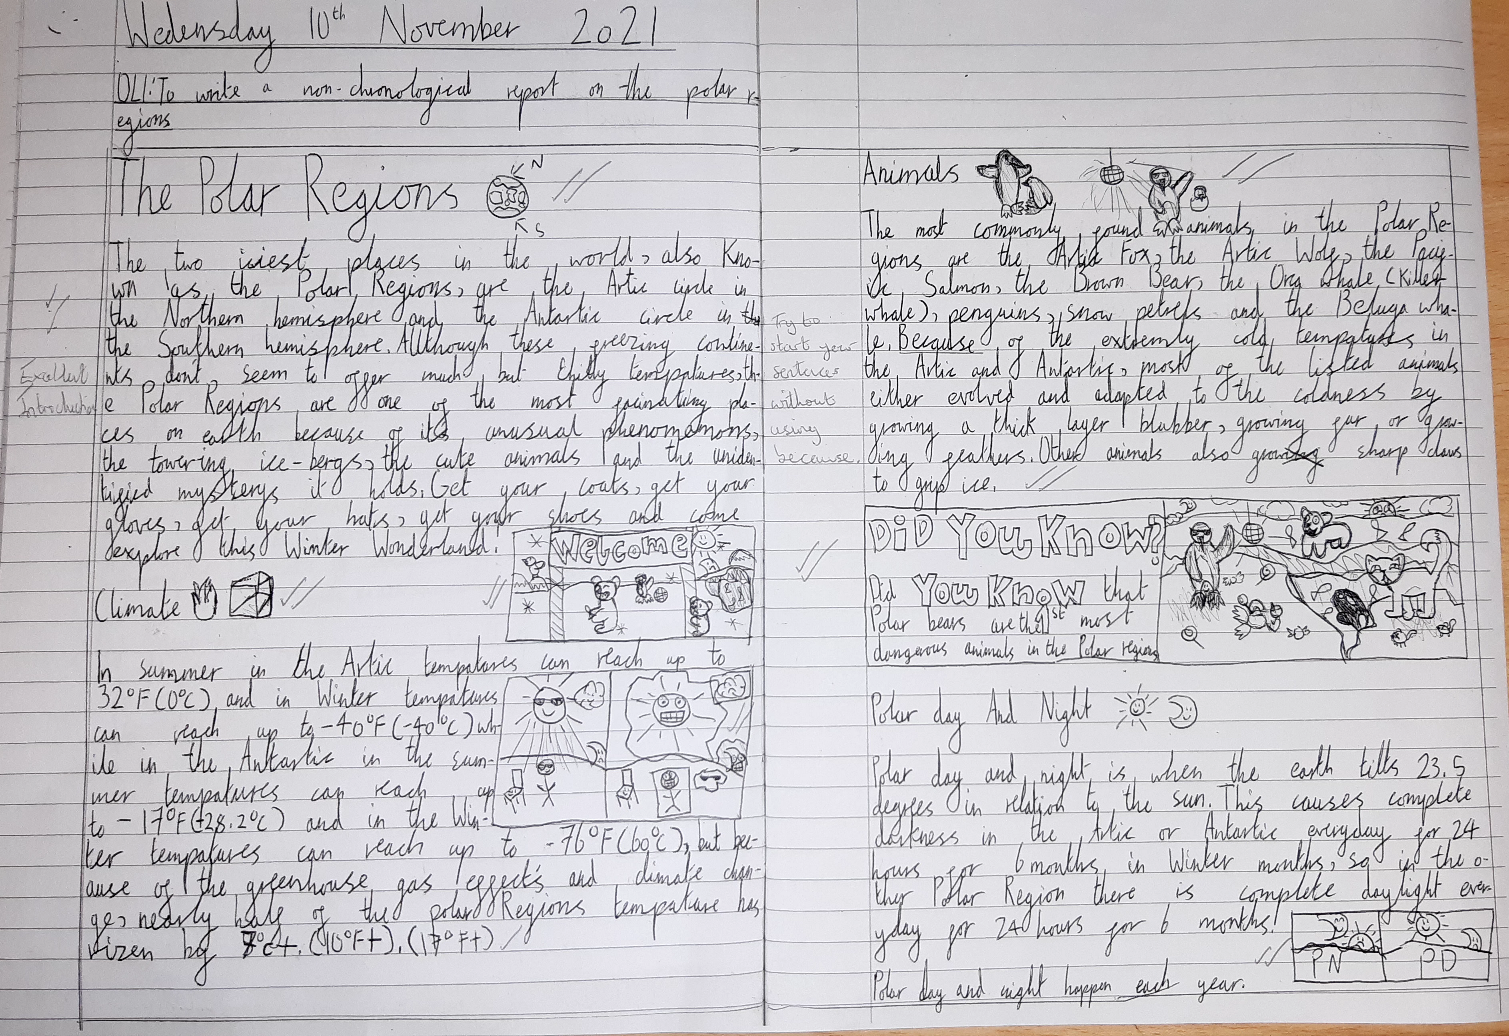 Wedensday 10th November 2021
OLI: To write a non-chronological report on the polar r-
egions
The Polar Regions
N
S
The two iciest places in the world, also Kno-
wn as the Polar Regions, are the Artic circle in
the Northern hemisphere and the Antartic circle in the
the Southern hemisphere. Allthough these freezing contine-
nts dont seem to offer much but chilly tempatures, th-
e Polar Regions are one of the most facinating pla-
ces on earth because of its unusual phenomamons,
the towering ice-bergs, the cute animals and the uniden-
tified mysterys it holds. Get your coats, get your
gloves, get your hats, get your shoes and come
explore this Winter Wonderland!
Excellent
Introduction
Welcome
Climate
In summer in the Artic tempatures can reach up to
32°F(0°C) and in Winter tempatures
can reach up to -40°F(-40°C) wh-
ile in the Antartic in the sum-
mer tempatures can reach up
to -17°F(-28.2°C) and in the Win-
ter tempatures can reach up to -76°F(60°C), but bec-
ause of the greenhouse gas effects and climate chan-
ge, nearly half of the polar Regions tempature has
rizen by 7°C+. (10°F+). (17°F+)
Animals
The most commonly found animals in the Polar Re-
gions are the Artic Fox, the Artic Wolf, the Pacif-
ic Salmon, the Brown Bear, the Orca whale (Killer
whale), penguins, snow petrels and the Beluga wha-
le. Because of the extremely cold tempatures in
the Artic and Antartic, most of the listed animals
either evolved and adapted to the coldness by
growing a thick layer blubber, growing fur or grow-
ing feathers. Other animals also growing sharp claws
to grip ice.
Try to
start your
sentences
without
using
because.
DiD You Know?
Did You Know that
Polar bears are the 1st most
dangerous animals in the Polar regions
Polar day And Night
Polar day and night is when the earth tilts 23.5
degrees in relation to the sun. This causes complete
darkness in the Artic or Antartic everyday for 24
hours for 6 months, in Winter months, so in the o-
ther Polar Region there is complete daylight ever-
yday for 24 hours for 6 months!
PN PD
Polar day and night happen each year.